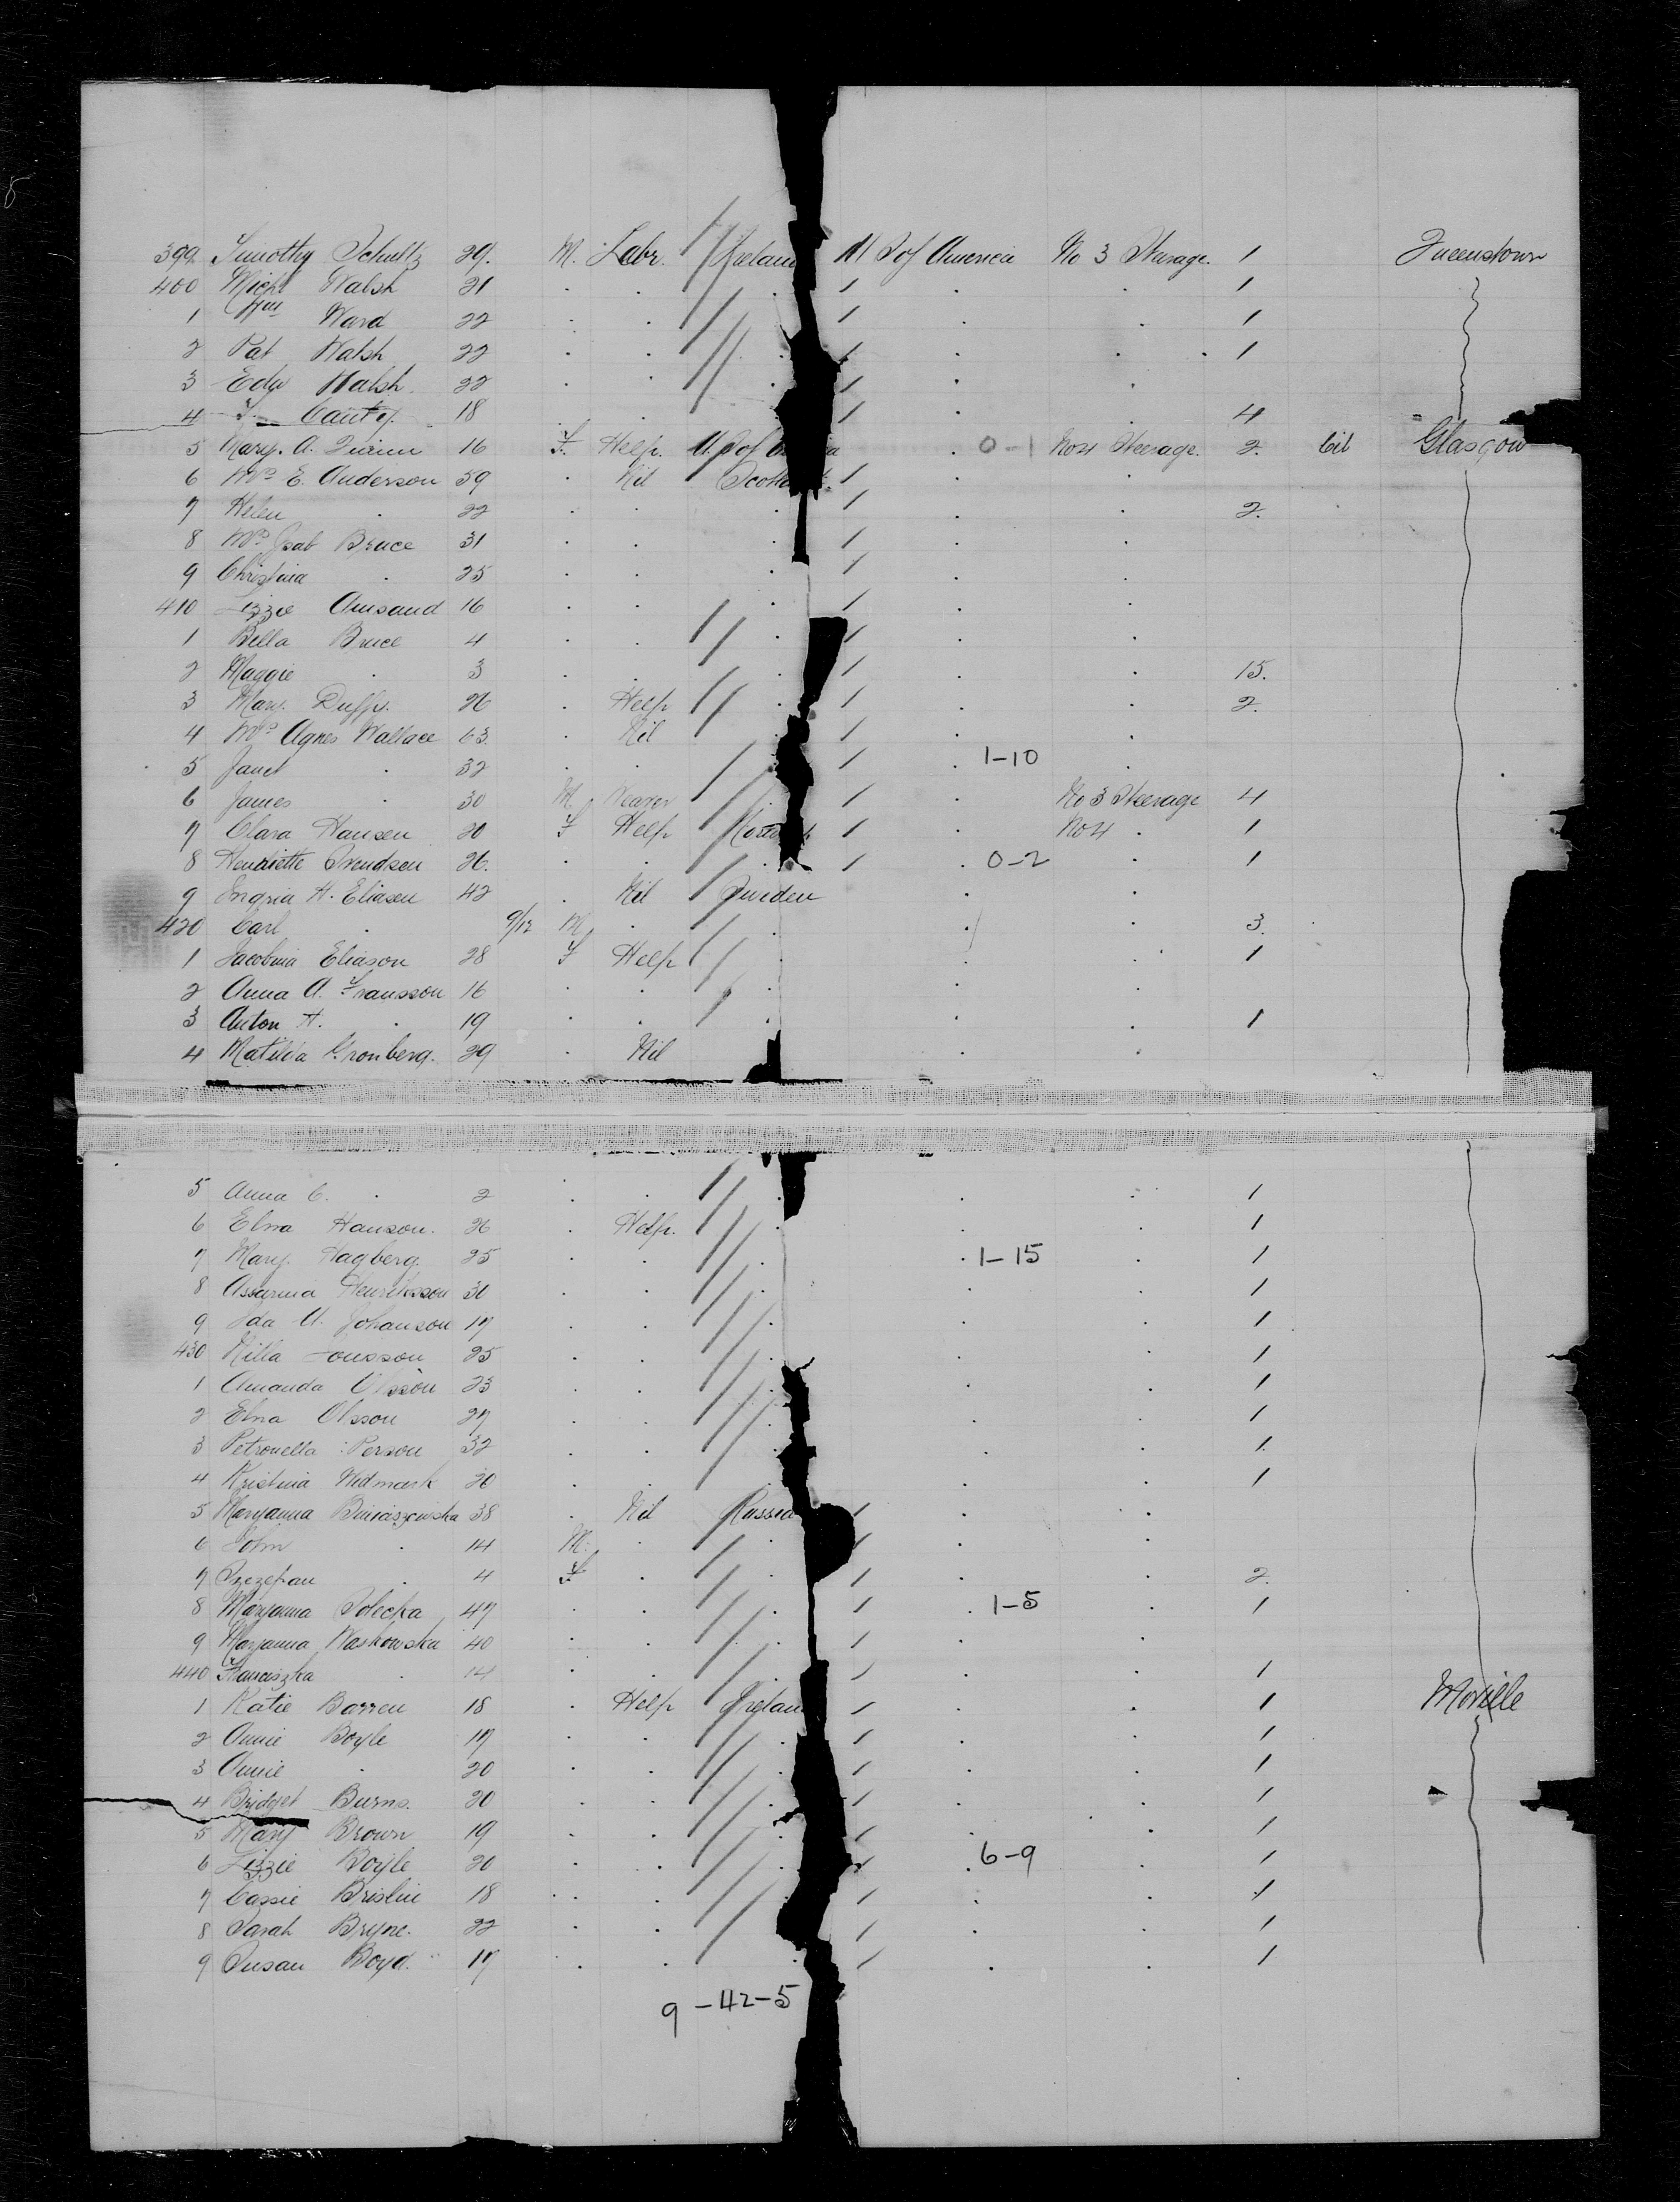 399 Timothy Schultz 29. M. Labr. Ireland U S of America No 3 Steerage. 1 Queenstown
400 Michl Walsh 21 . . . . . 1
1 Wm Ward 22 . . . . . 1
2 Pat Walsh 22 . . . . . 1
3 Edw Walsh. 22 . . . . .
4 T. Canty. 18 . . . 4
5 Mary. A. Quinn 16 F. Help. U. S of . 0-1 No 4 Steerage. 2. Cit Glasgow
6 Mrs E. Anderson 59 . Nil Scotland . .
7 Helen . 22 . . . . . 2.
8 Mrs Isab Bruce 31 . . . . .
9 Christina . 25 . . . . .
410 Lizzie Amsaud 16 . . . . .
1 Bella Bruce 4 . . . . .
2 Maggie . 3 . . . . . 15.
3 Mary. Duffy. 26 . Help . . . 2.
4 Mrs Agnes Wallace 63. . Nil . .
5 Janet . 32 . . . . 1-10 .
6 James . 30 M. Weaver . . No 3 Steerage 4
7 Clara Hansen 20 F Help Norway . No 4 . 1
8 Henriette Svendsen 26. . . . . 0-2 . 1
9 Ingria H. Eliasen 42 . Nil Sweden . .
420 Carl . 9/12 M. . . . . 3.
1 Jacobina Eliason 28 F Help . . . 1
2 Anna A. Fransson 16 . . . . .
3 Anton H. . 19 . . . . . 1
4 Matilda Gronberg. 29 . Nil . .
5 Anna C. . 2 . . . . . 1
6 Elna Hanson. 26 . Help. . . . 1
7 Mary. Hagberg. 25 . . . . 1-15 . 1
8 Assarina Henriksson 30 . . . . . 1
9 Ida A. Johanson 17 . . . . . 1
430 Nilla Jonsson 25 . . . . . 1
1 Amanda Olsson 23 . . . . . 1
2 Elna Olsson 27 . . . . . 1
3 Petronella Person 32 . . . . . 1
4 Kristina Widmark 20 . . . . . 1
5 Maryanna 38 . Nil Russia . .
6 John . 14 M. . . . .
7 Szczepan . 4 F . . . . 2.
8 Maryanna Solecka 47 . . . . 1-5 . 1
9 Maryanna Waskowska 40 . . . . .
440 Franciszka . 14 . . . . . 1
1 Katie Barren 18 . Help Ireland . . 1 Moville
2 Annie Boyle 17 . . . . . 1
3 Annie . 20 . . . . . 1
4 Bridget Burns. 20 . . . . . 1
5 Mary Brown 19 . . . . . 1
6 Lizzie Boyle 20 . . . . 6-9 . 1
7 Cassie Brislin 18 . . . . . 1
8 Sarah Bryne. 22 . . . . . 1
9 Susan Boyd. 17 . . . . . 1
9-42-5